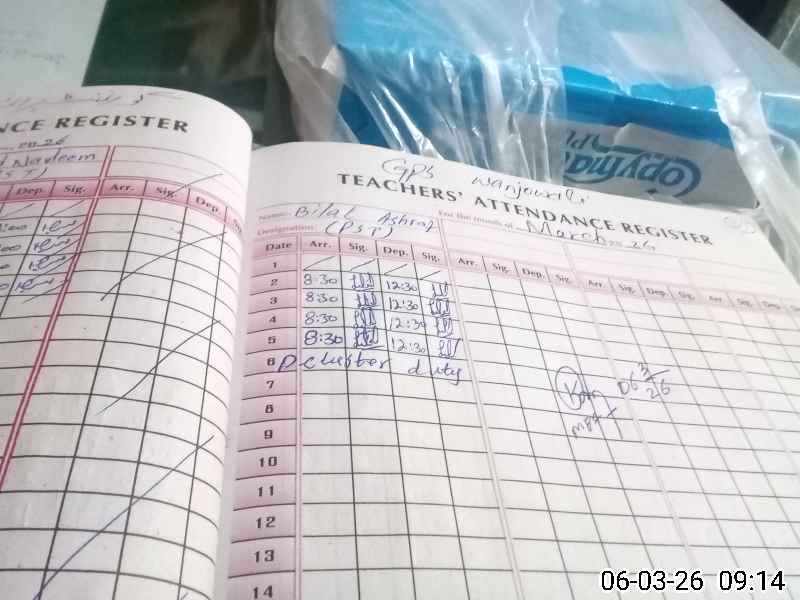 NCE REGISTER
Nadeem
Dep. Sig. Arr. Sig. Dep.
GPS Wanjewali
TEACHERS' ATTENDANCE REGISTER
Name: Bilal Ashraf For the month of March 2026
Designation: (PST)
Date Arr. Sig. Dep. Sig. Arr. Sig. Dep. Sig. Arr. Sig. Dep. Sig. Arr. Sig. Dep.
1
2 8:30 12:30
3 8:30 12:30
4 8:30 12:30
5 8:30 12:30
6 cluster duty
7
8
9
10
11
12
13
14
06 3/26
Copymate
06-03-26 09:14